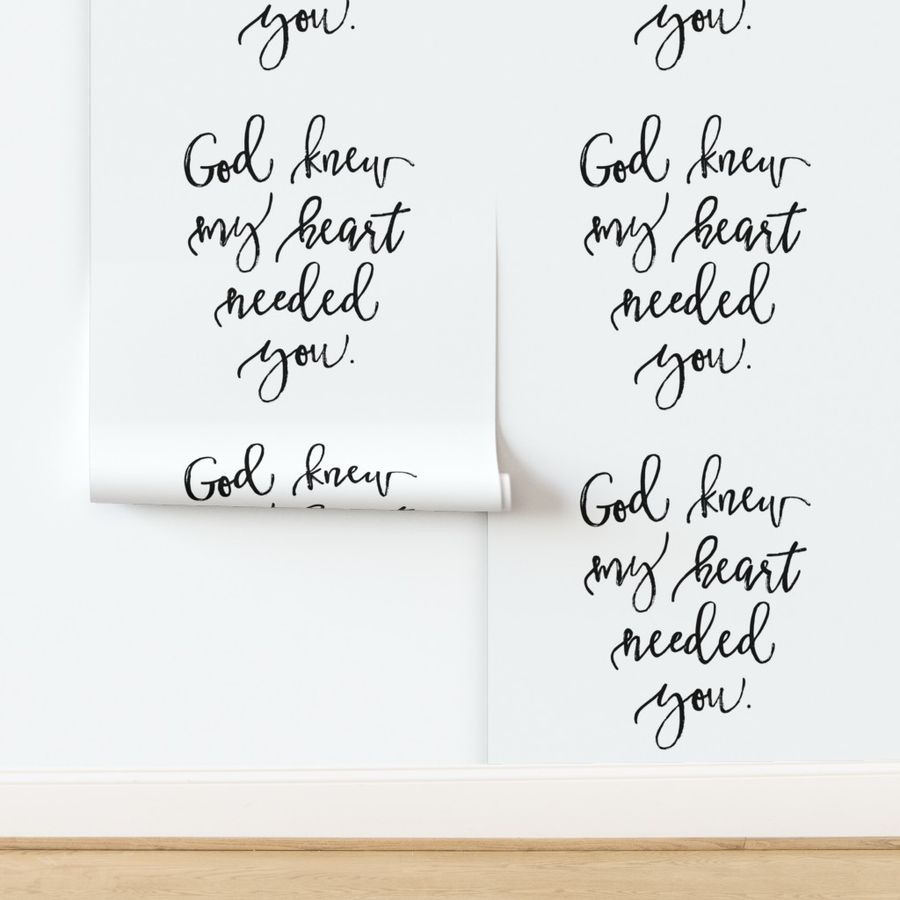 you.
God knew
my heart
needed
you.
God knew
you.
God knew
my heart
needed
you.
God knew
my heart
needed
you.